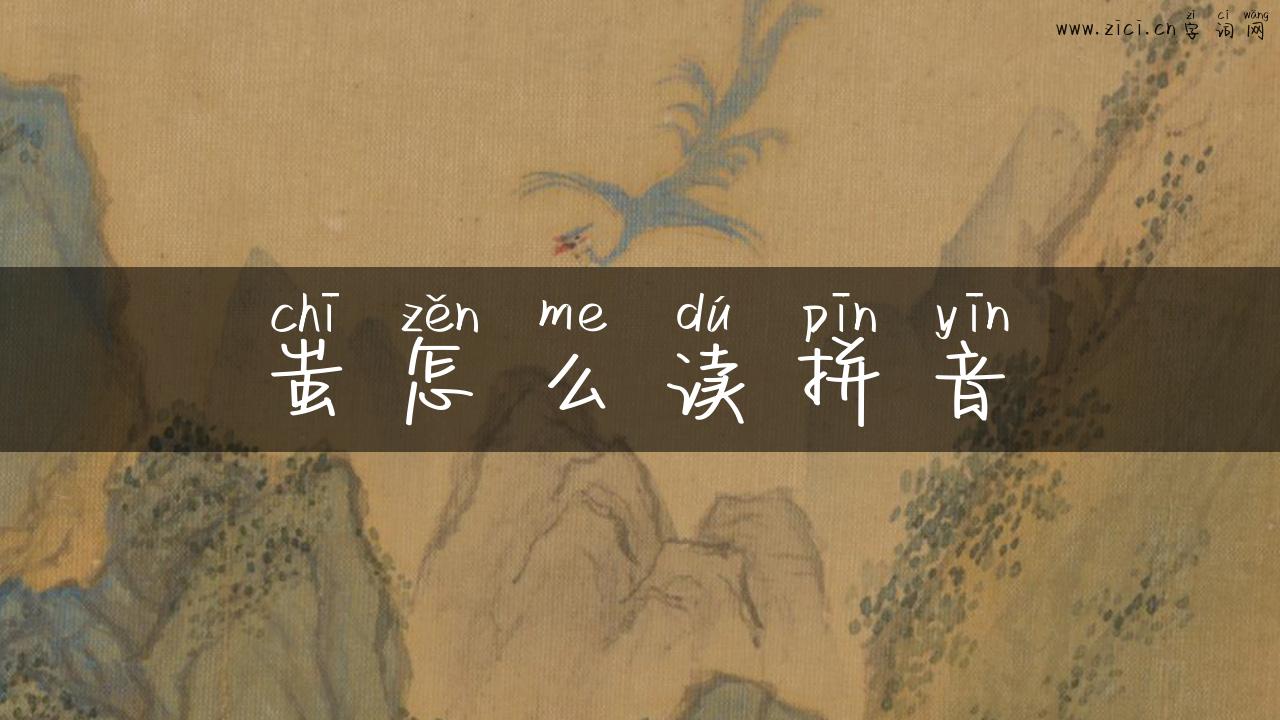 zì cí wǎng
www.zici.cn字词网
chī zěn me dú pīn yīn
蚩怎么读拼音